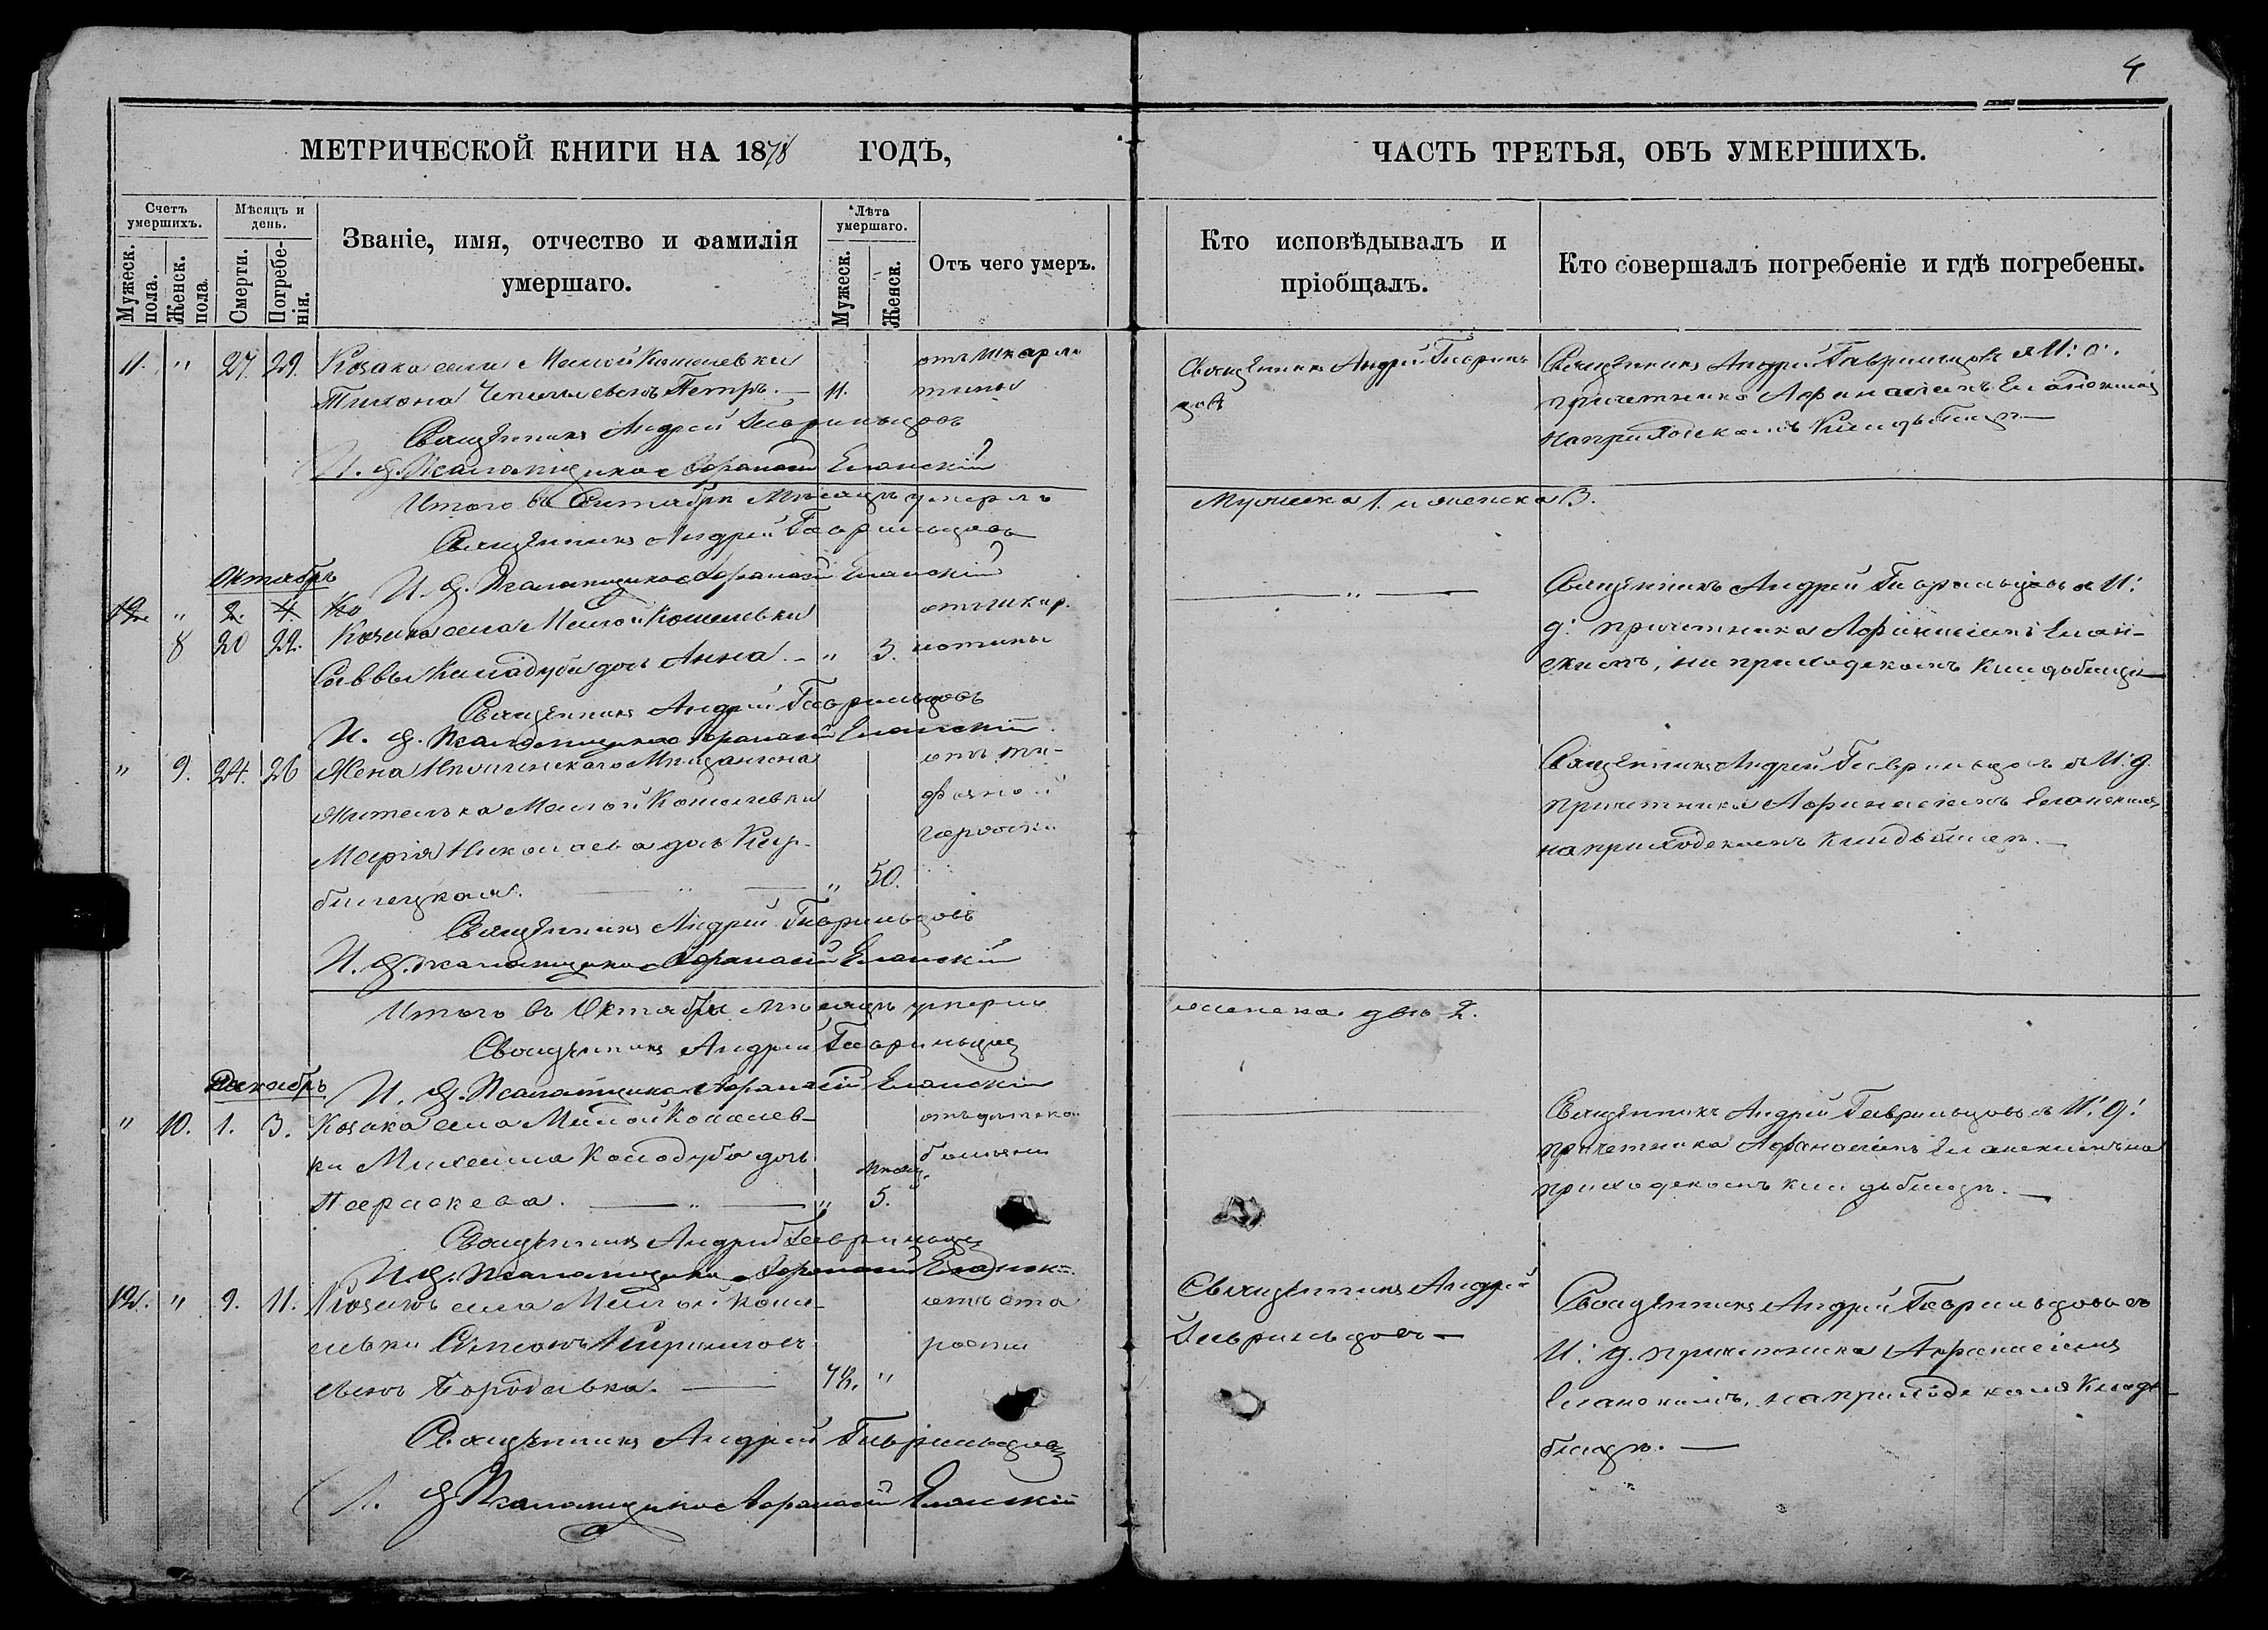 4
МЕТРИЧЕСКОЙ КНИГИ НА 1878 ГОДЪ,
ЧАСТЬ ТРЕТЬЯ, ОБЪ УМЕРШИХЪ.
Счетъ умершихъ.
Мужеск. пола.
Женск. пола.
Мѣсяцъ и день.
Смерти.
Погребенія.
Званіе, имя, отчество и фамилія умершаго.
Лѣта умершаго.
Мужеск.
Женск.
Отъ чего умеръ.
Кто исповѣдывалъ и пріобщалъ.
Кто совершалъ погребеніе и гдѣ погребены.
11. " 27. 29. Козака села Малой Кошелевки
Тихона сынъ Петръ. — 11.
отъ шкарла
тины
Священникъ Андрей Гаврильцовъ
И. д. Псаломщика Афанасій Еланскій
Священникъ Андрей Гаврил
цовъ
Священникъ Андрей Гаврильцовъ съ И: д.
причетника Афанасіемъ Еланскимъ
на приходскомъ кладбищѣ —
Итого въ Сентябрѣ мѣсяцѣ умерло
мужеска 1. и женска 3.
Священникъ Андрей Гаврильцовъ
И. д. Псаломщика Афанасій Еланскій
Октябрь
12. " 2. 4. Ко
8 20 22. Козака села Малой Кошелевки
Саввы Колодуба дочь Анна. — " 3.
отъ шкар.
латины
Священникъ Андрей Гаврильцовъ
И. д. Псаломщика Афанасій Еланскій
— " —
Священникъ Андрей Гаврильцовъ съ И:
д: причетника Афанасіемъ Елан-
скимъ, на приходскомъ кладбищѣ —
" 9. 24. 26 Жена Нѣжинскаго Мѣщанина
жителька Малой Кошелевки
Марія Николаева дочь
билецкая. — " — " 50.
отъ ти-
фозной
горячки
Священникъ Андрей Гаврильцовъ
И. д. Псаломщика Афанасій Еланскій
Священникъ Андрей Гаврильцовъ съ И: д.
причетника Афанасіемъ Еланскимъ
на приходскомъ кладбищѣ. —
Итого въ Октябрѣ мѣсяцѣ умерло
женска. двѣ 2.
Священникъ Андрей Гаврильцовъ
И. д. Псаломщика Афанасій Еланскій
Декабрь
" 10. 1. 3. Козака села Малой Кошелев-
ки Михаила Колодуба дочь
Параскева. — " — " мѣсяц. 5.
отъ дѣтской
болѣзни
Священникъ Андрей Гаврильцовъ
И. д. Псаломщика Афанасій Еланскій
Священникъ Андрей Гаврильцовъ съ И: д:
причетника Афанасіемъ Еланскимъ на
приходскомъ кладбищѣ. —
12. " 9. 11. Козакъ села Малой Коше-
левки
евичъ Бородавка. — "
отъ ста
рости
Священникъ Андрей Гаврильцовъ
И. д. Псаломщика Афанасій Еланскій
Священникъ Андрей
Гаврильцовъ —
Священникъ Андрей Гаврильцовъ съ
И: д. причетника Афанасіемъ
Еланскимъ, на приходскомъ клад-
бищѣ. —